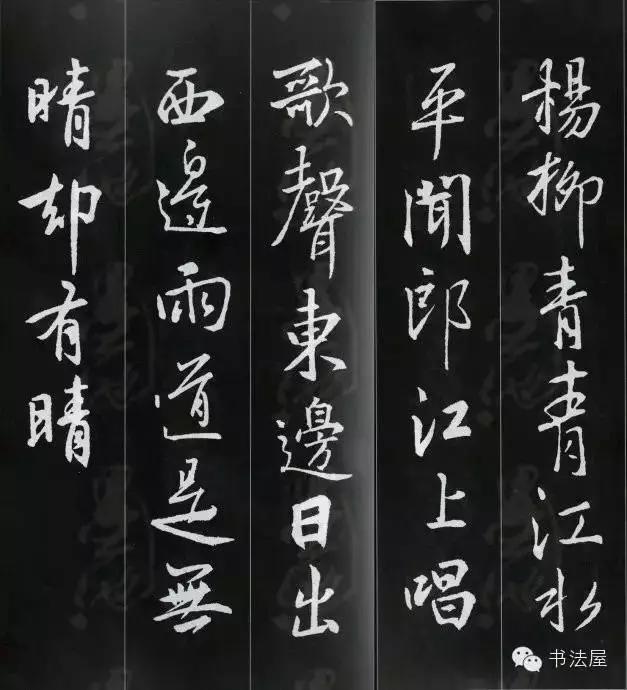 楊柳青青江水
平聞郎江上唱
歌聲東邊日出
西邊雨道是無
晴却有晴
书法屋